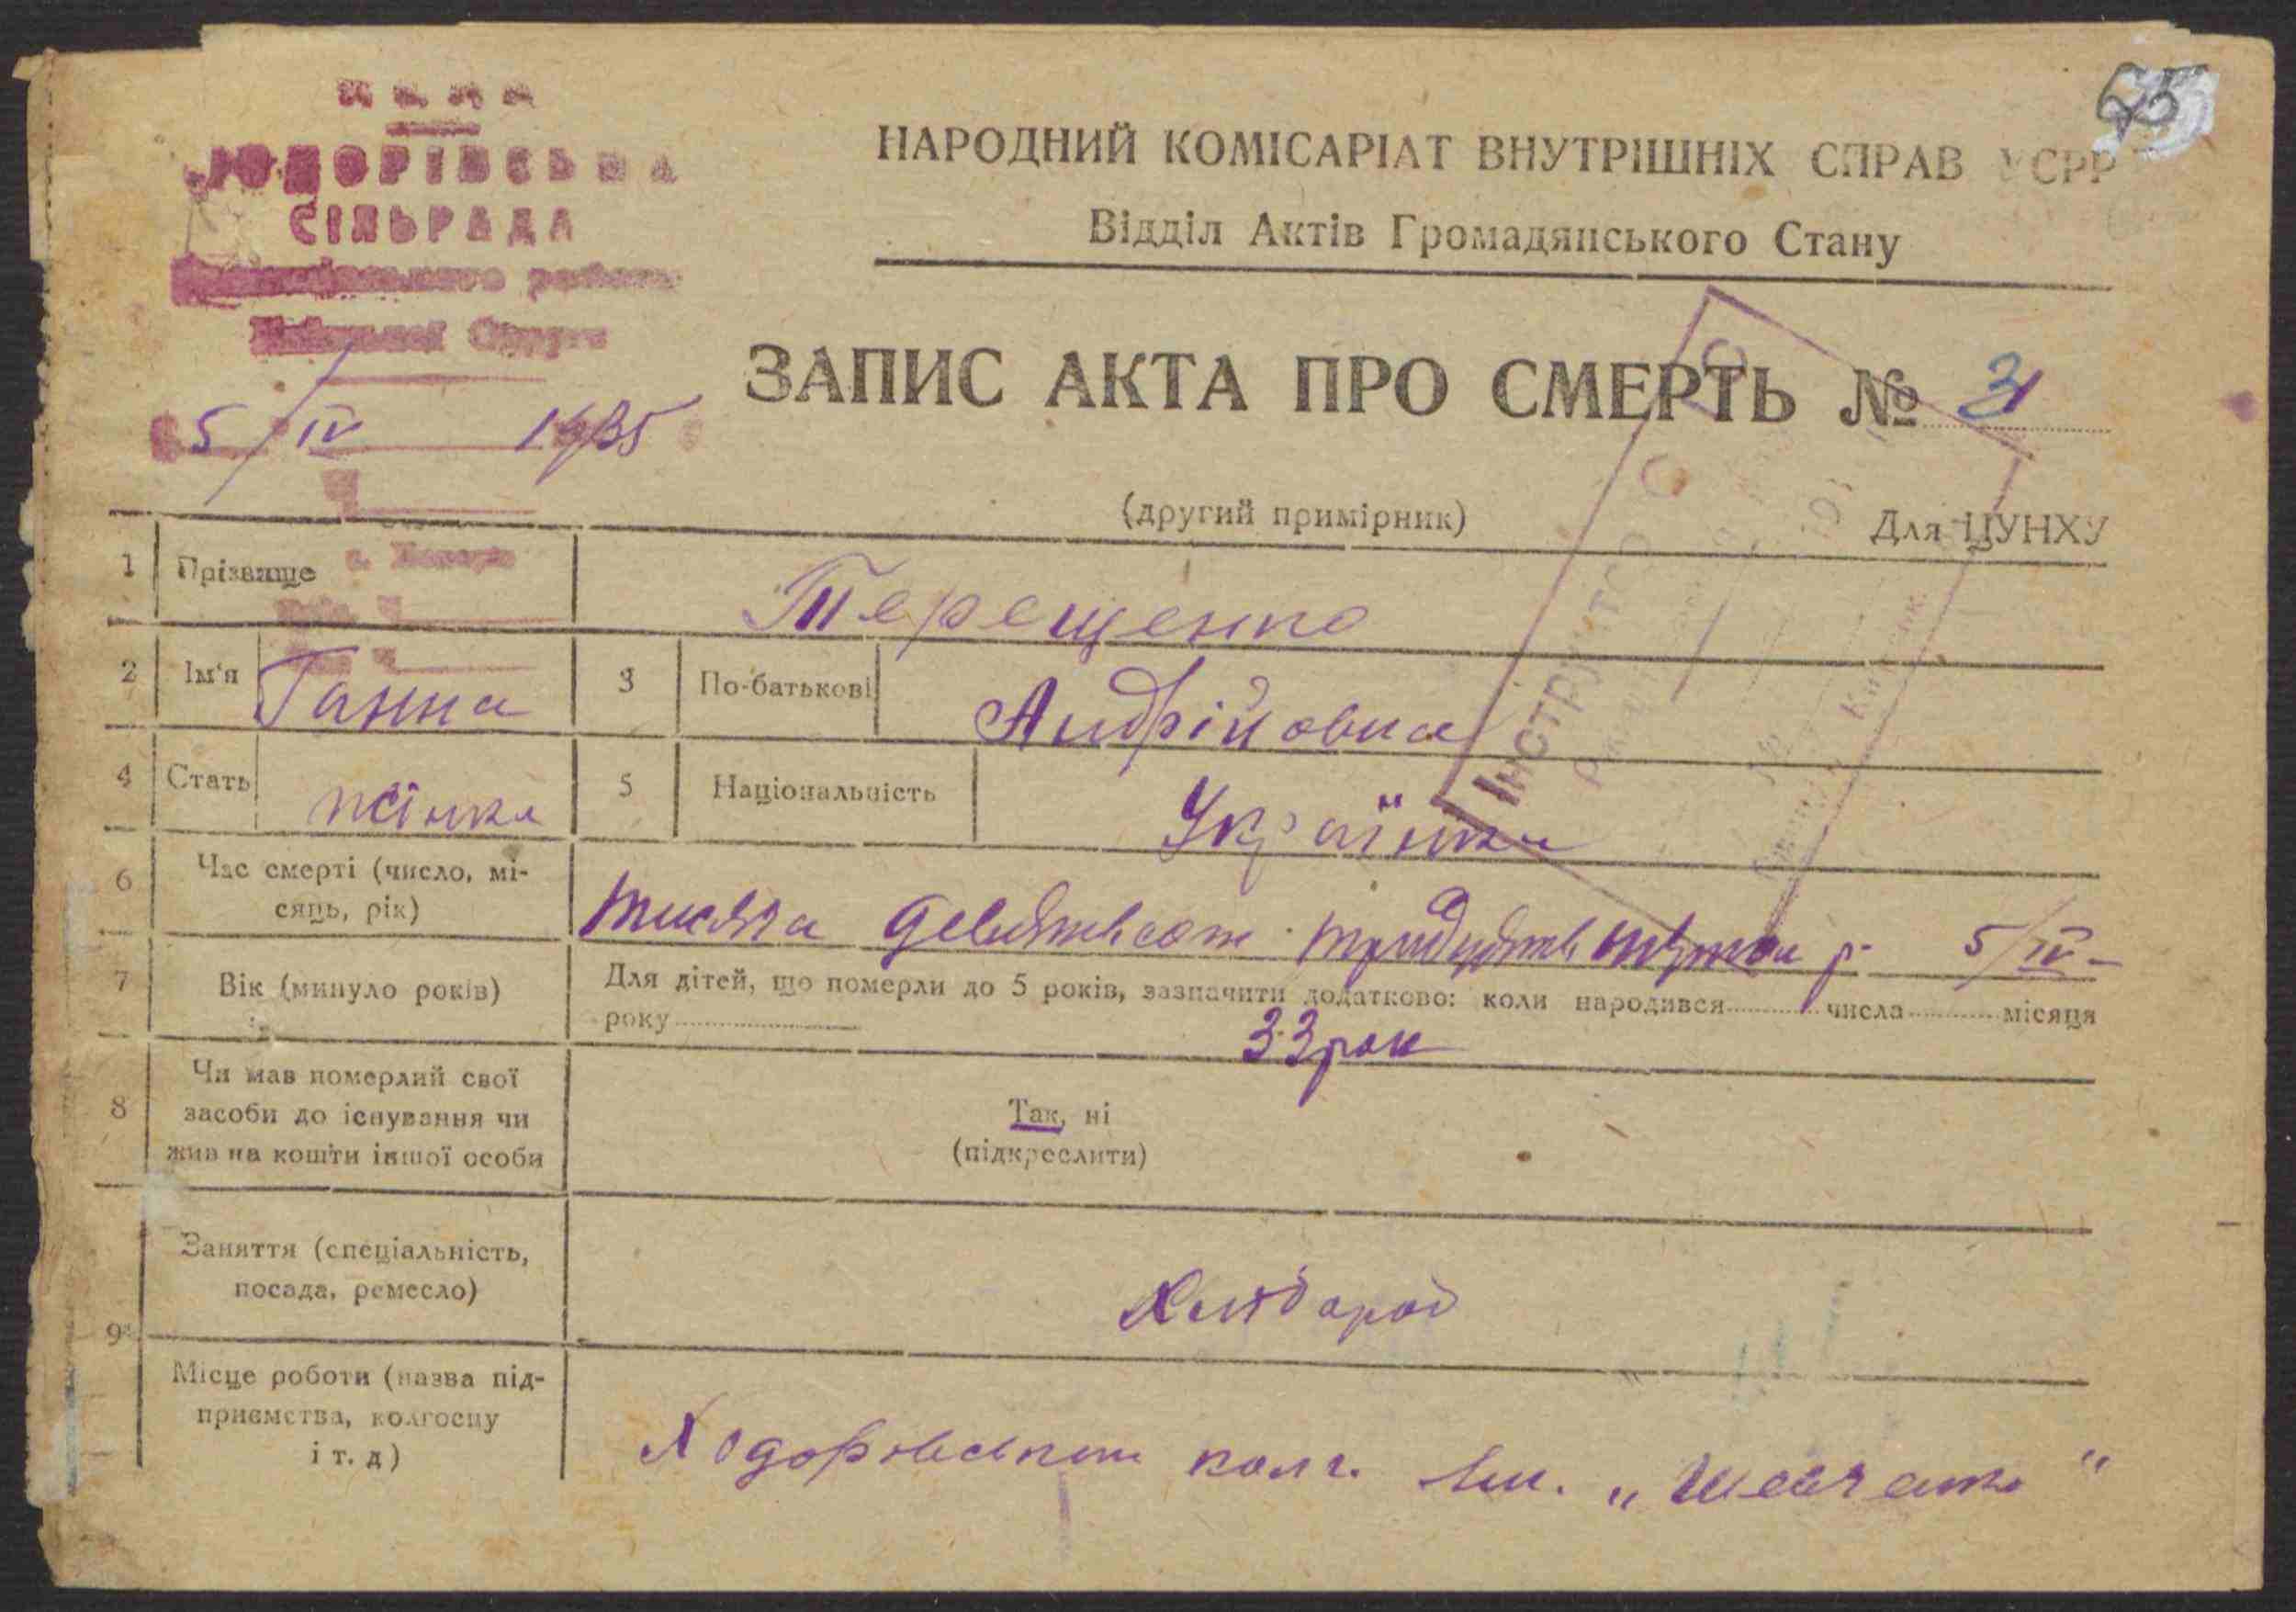 65
ХОДОРІВСЬКА
СІЛЬРАДА
району
Округи
5/IV 1935
НАРОДНИЙ КОМІСАРІАТ ВНУТРІШНІХ СПРАВ УСРР
Відділ Актів Громадянського Стану
ЗАПИС АКТА ПРО СМЕРТЬ № 31
(другий примірник)
Для ЦУНХУ
1 Прізвище Терещенко
2 Ім'я Ганна 3 По-батькові Андрійовна
4 Стать жінка 5 Національність Українка
6 Час смерті (число, мі-
сяць, рік)
тисяча девятьсот тридцять р. 5/IV-
7 Вік (минуло років) Для дітей, що померли до 5 років, зазначити додатково: коли народився числа місяця
року
33 рок
8 Чи мав померлий свої
засоби до існування чи
жив на кошти іншої особи
Так, ні
(підкреслити)
9 Заняття (спеціальність,
посада, ремесло)
Хлібороб
Місце роботи (назва під-
приємства, колгоспу
і т. д)
колг. Ім. „Шевченк"